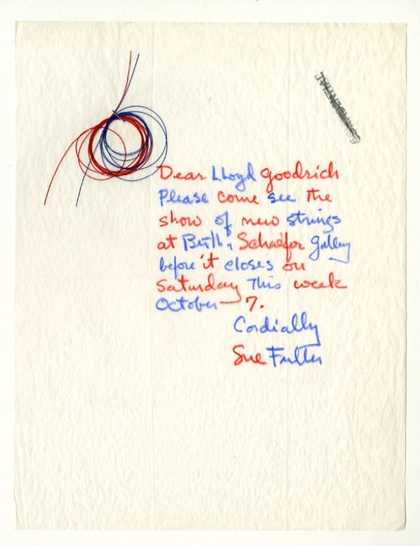 Dear Lloyd Goodrich
Please come see the
show of new strings
at Bertha Schaefer Gallery
before it closes on
Saturday This week
October — 7.
Cordially
Sue Fuller